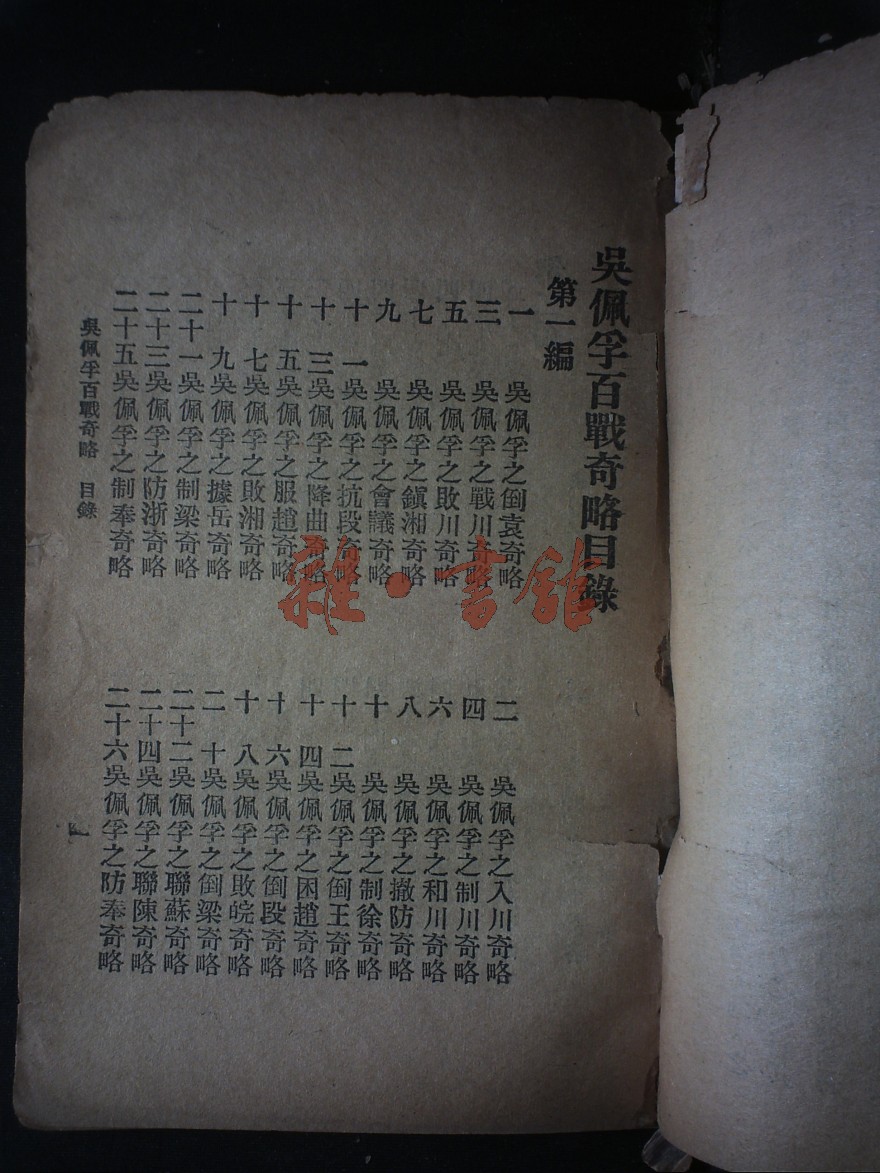 吳佩孚百戰奇略目錄
第一編
一 吳佩孚之倒袁奇略
二 吳佩孚之入川奇略
三 吳佩孚之戰川奇略
四 吳佩孚之制川奇略
五 吳佩孚之敗川奇略
六 吳佩孚之和川奇略
七 吳佩孚之鎭湘奇略
八 吳佩孚之撤防奇略
九 吳佩孚之會議奇略
十 吳佩孚之制徐奇略
十一 吳佩孚之抗段奇略
十二 吳佩孚之倒王奇略
十三 吳佩孚之降曲奇略
十四 吳佩孚之困趙奇略
十五 吳佩孚之服趙奇略
十六 吳佩孚之倒段奇略
十七 吳佩孚之敗湘奇略
十八 吳佩孚之敗皖奇略
十九 吳佩孚之據岳奇略
二十 吳佩孚之倒梁奇略
二十一 吳佩孚之制梁奇略
二十二 吳佩孚之聯蘇奇略
二十三 吳佩孚之防浙奇略
二十四 吳佩孚之聯陳奇略
二十五 吳佩孚之制奉奇略
二十六 吳佩孚之防奉奇略
吳佩孚百戰奇略 目錄
一
雜·書館